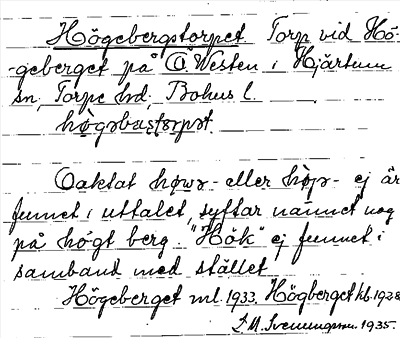 Högebergstorpet. Torp vid Hö-
-geberget på Ö. Westen i Hjärtum
sn, Torpe hd. Bohus l.
Oaktat eller ej är
funnet i uttalet, syftar namnet nog
på högt berg. "Hök" ej funnet i
samband med stället
Högeberget ml. 1933. Högberget kb. 1928
1935.